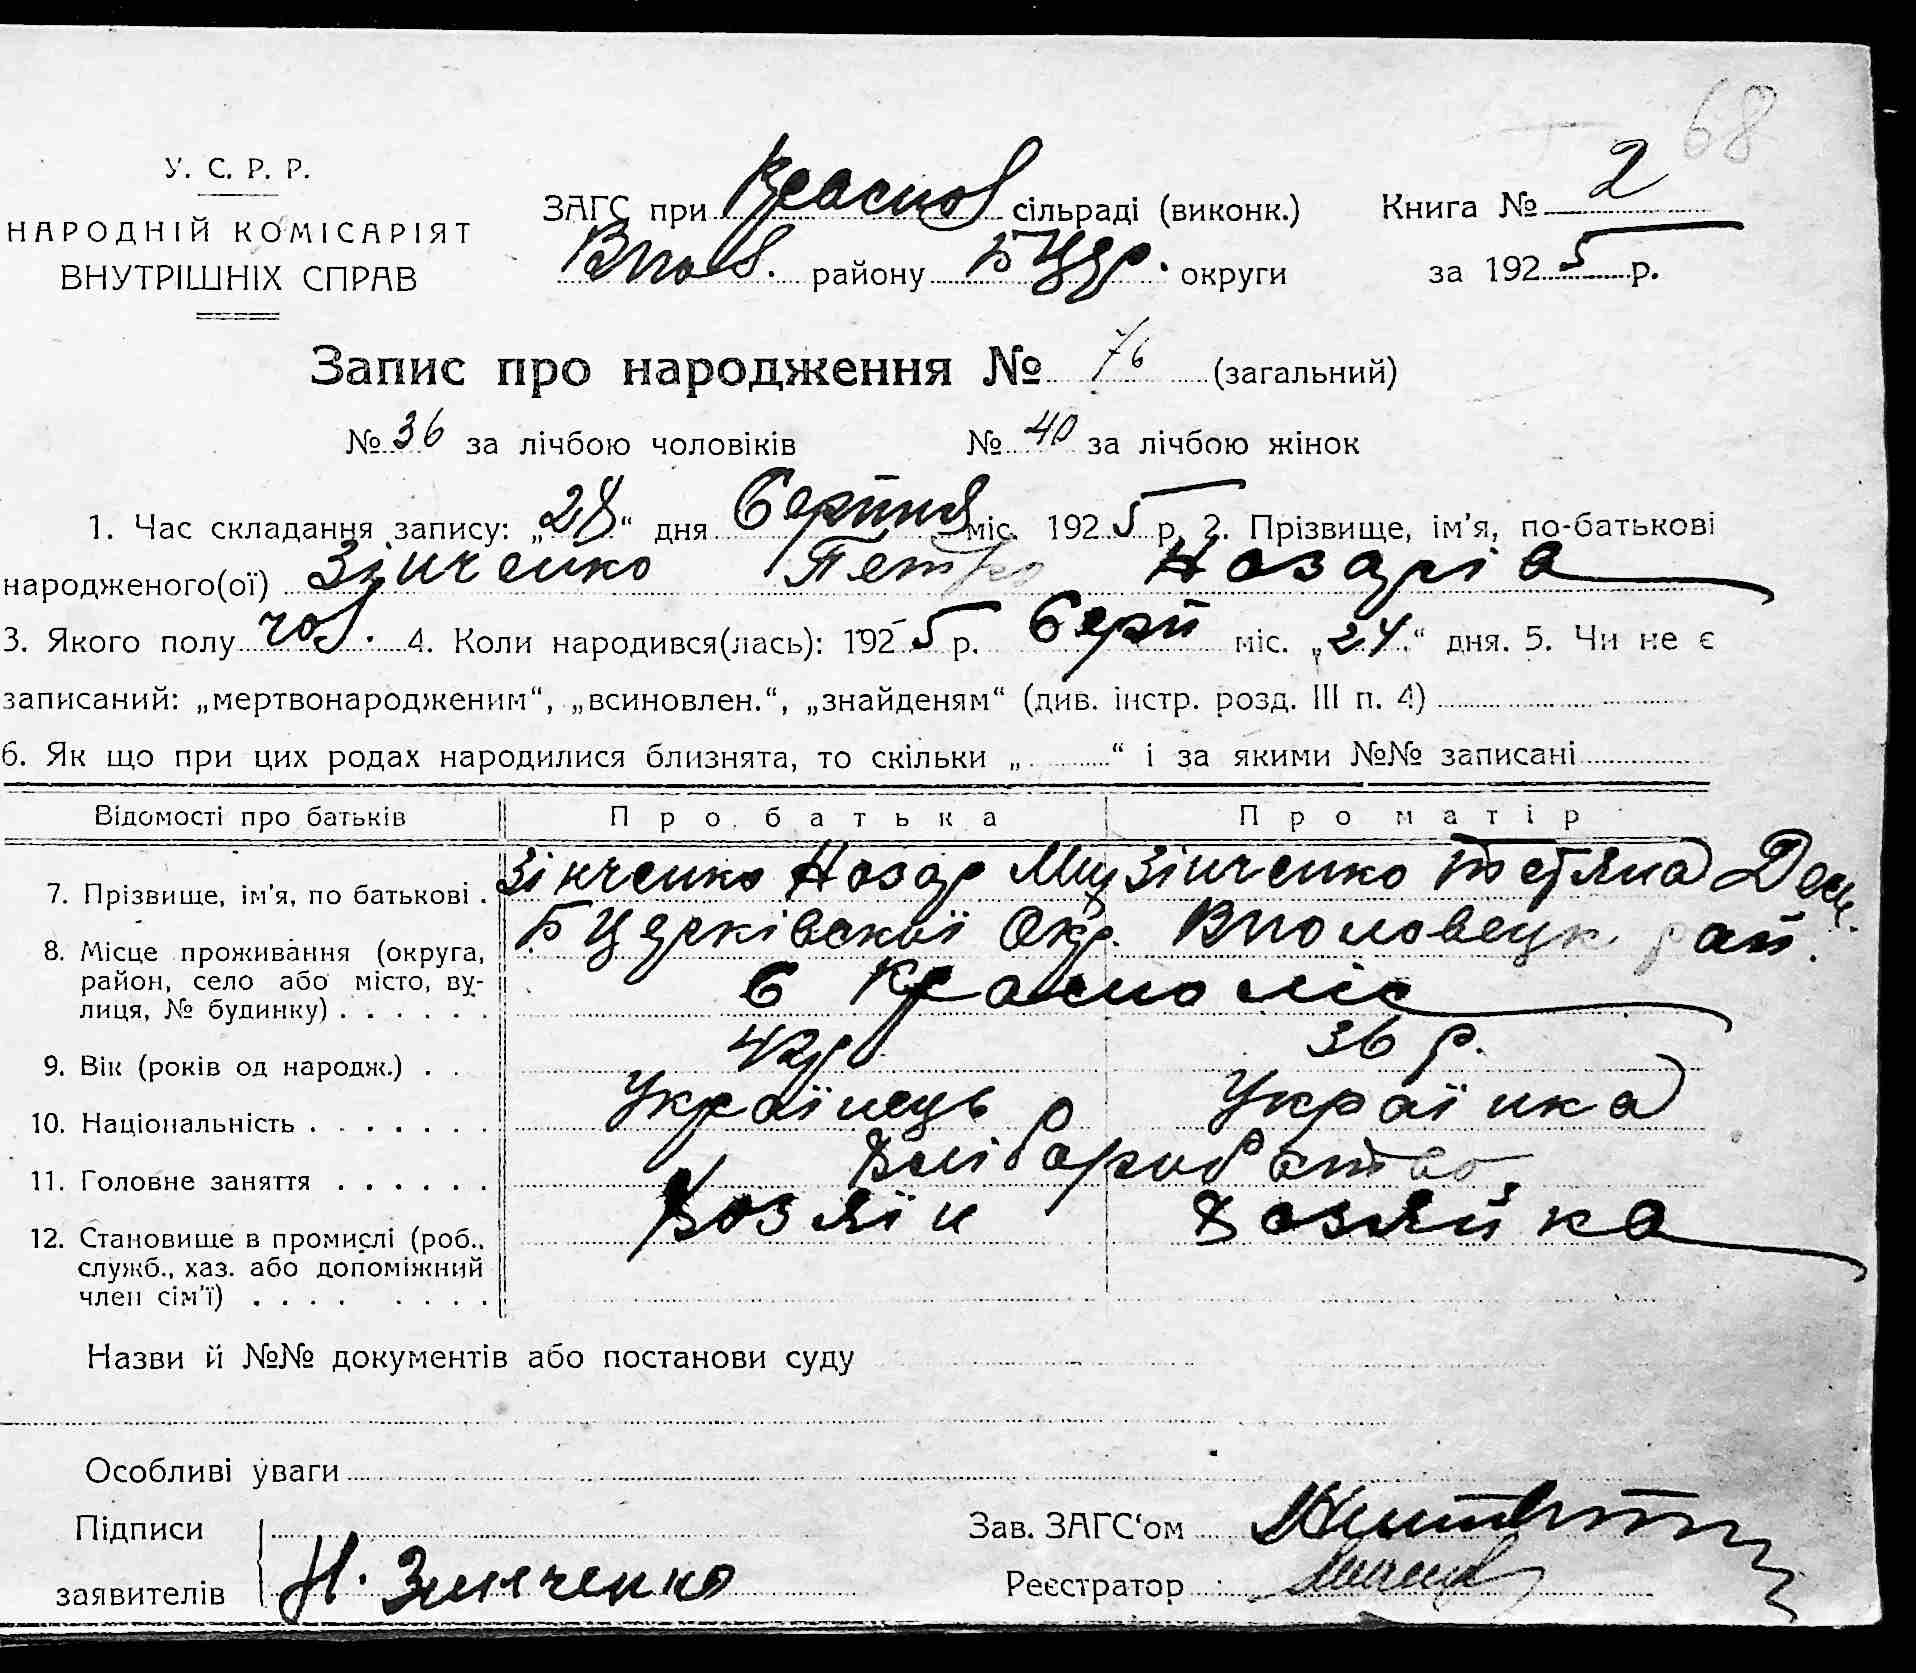 68
У. С. Р. Р.
НАРОДНІЙ КОМІСАРІЯТ
ВНУТРІШНІХ СПРАВ
ЗАГС при Краснол сільраді (виконк.) Книга № 2
Впол. району БЦер. округи за 1925 р.
Запис про народження № 76 (загальний)
№ 36 за лічбою чоловіків № 40 за лічбою жінок
1. Час складання запису: „28“ дня Серпня міс. 1925 р. 2. Прізвище, ім’я, по-батькові
народженого(ої) Зінченко Петро Назарів
3. Якого полу чол. 4. Коли народився(лась): 1925 р. Серп міс. „24“ дня. 5. Чи не є
записаний: „мертвонародженим“, „всиновлен.“, „знайденям“ (див. інстр. розд. III п. 4)
6. Як що при цих родах народилися близнята, то скільки „ “ і за якими №№ записані
Відомості про батьків Про батька Про матір
7. Прізвище, ім’я, по батькові . Зінченко Назар Зінченко Тетяна
8. Місце проживання (округа, район, село або місто, вулиця, № будинку) . . . . . . БЦерківської Окр. Вполовецьк рай.
С Краснолісс
9. Вік (років од народж.) . . 42р 36 р.
10. Національність . . . . . . . Українець Українка
11. Головне заняття . . . . . . Хліборобство
12. Становище в промислі (роб., служб., хаз. або допоміжний член сім’ї) . . . . . . . . Хозяїн Хозяйка
Назви й №№ документів або постанови суду
Особливі уваги
Підписи
заявителів Н. Зинченко
Зав. ЗАГС‘ом
Реєстратор